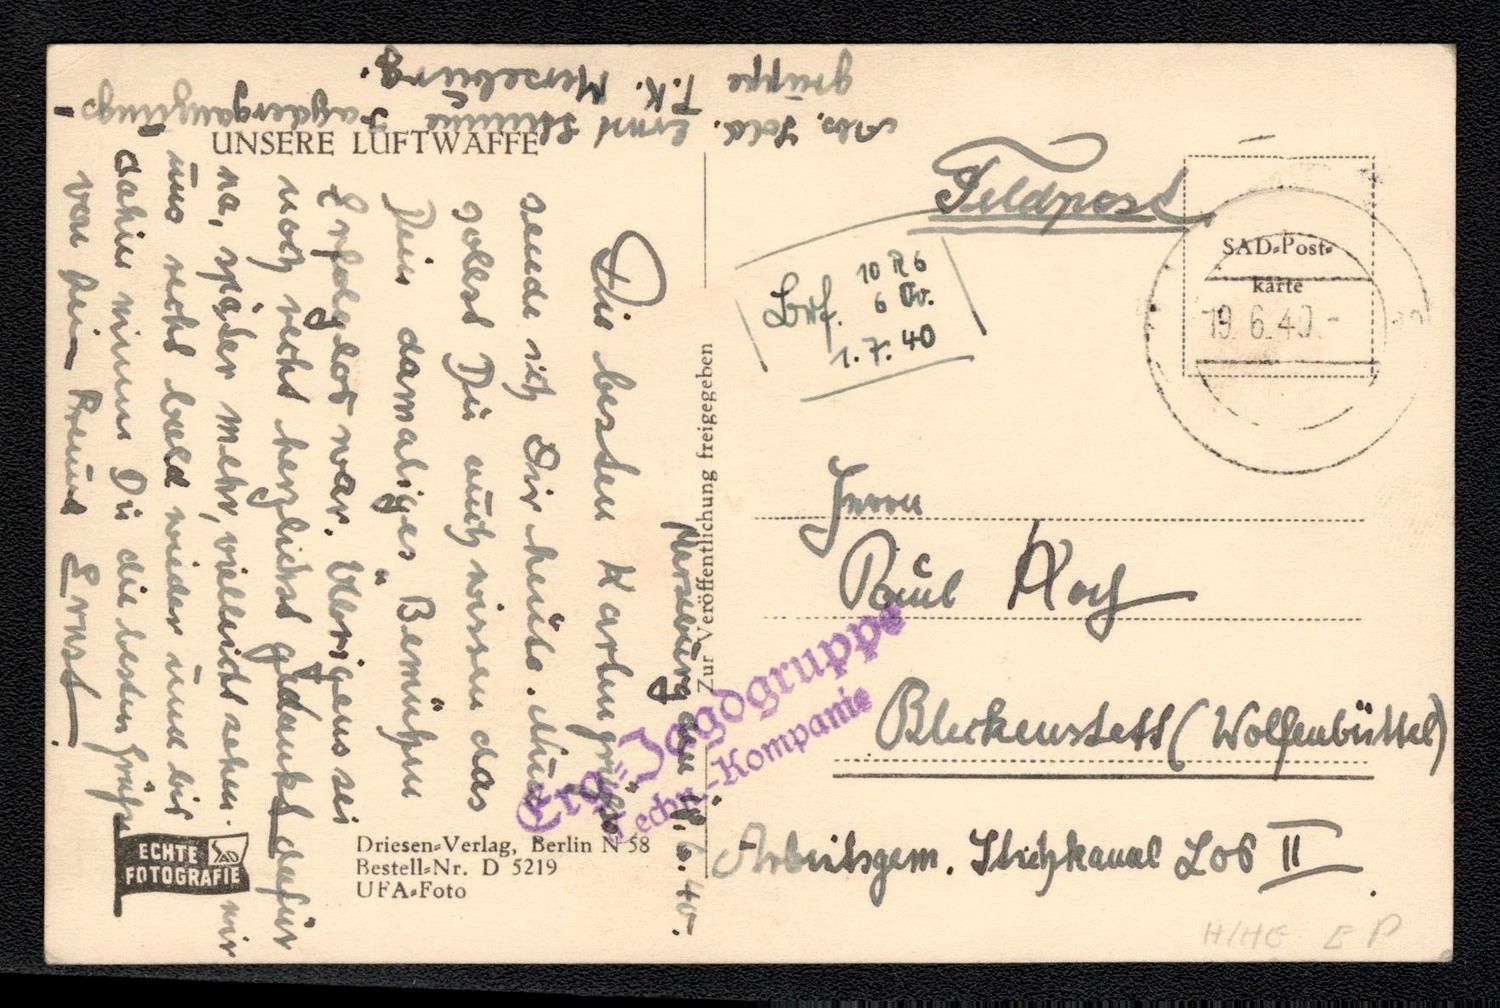 Abs. Sold. Ernst Jägerergänzungs-
gruppe T.K. Merseburg.
UNSERE LUFTWAFFE
Merseburg den 6.40.
Die besten Kartengrüße
sende ich Dir heute. Nun
sollst Du auch wissen das
Dein damaliges Bemühen
Erfolglos war. Übrigens sei
noch recht herzlichst gedankt dafür
na, später mehr, vielleicht sehen wir
uns recht bald wieder und bis
dahin nimm Du die besten Grüße
von Dein Freund Ernst.
ECHTE
SAD
FOTOGRAFIE
Driesen-Verlag, Berlin N 58
Bestell-Nr. D 5219
UFA-Foto
Zur Veröffentlichung freigegeben
Erg.-Jagdgruppe
Techn.-Kompanie
Feldpost
SAD-Post-
karte
19.6.40.-
10 R 6
6
1.7.40
Herrn
Paul Koch
Bleckenstett (Wolfenbüttel)
Arbeitsgem. Stichkanal Los II
H/HE E P